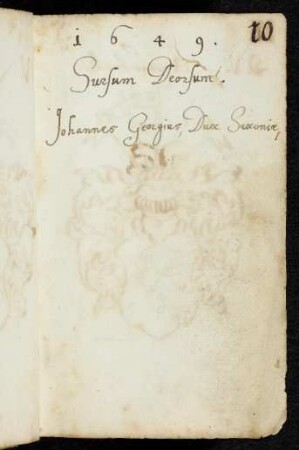 10
1 6 4 9 .
Sursum Deorsum.
Johannes Georgius, Dux Saxoniæ,